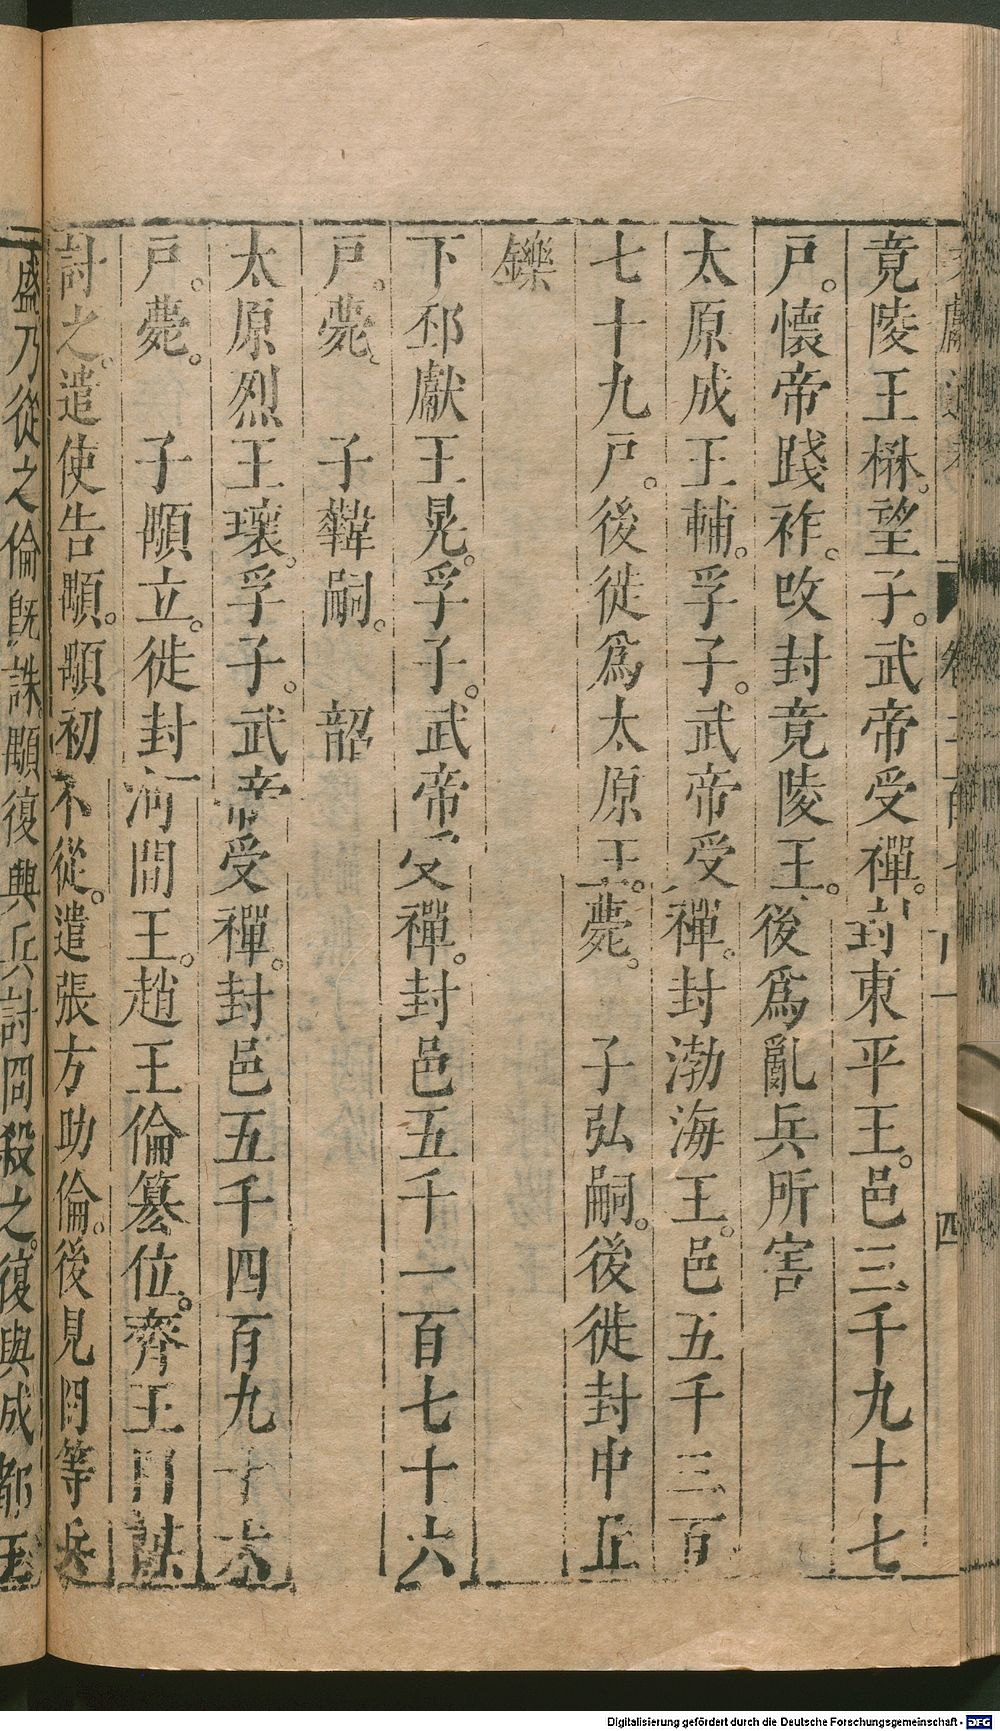 竟陵王楙。望子。武帝受禪。封東平王。邑三千九十七
戶。懷帝踐祚。改封竟陵王。後爲亂兵所害
太原成王輔。孚子。武帝受禪。封渤海王。邑五千三百
七十九戶。後徙爲太原王。薨。 子弘嗣。後徙封中丘
鑠
下邳獻王晃。孚子。武帝受禪。封邑五千一百七十六
戶。薨。 子韡嗣。 韶
太原烈王瓌。孚子。武帝受禪。封邑五千四百九十六
戶。薨。 子顒立。徙封河間王。趙王倫簒位。齊王冏謀
討之。遣使告顒。顒初不從。遣張方助倫。後見冏等兵
盛乃從之倫旣誅。顒復興兵討冏殺之。復與成都王
四
Digitalisierung gefördert durch die Deutsche Forschungsgemeinschaft - DFG